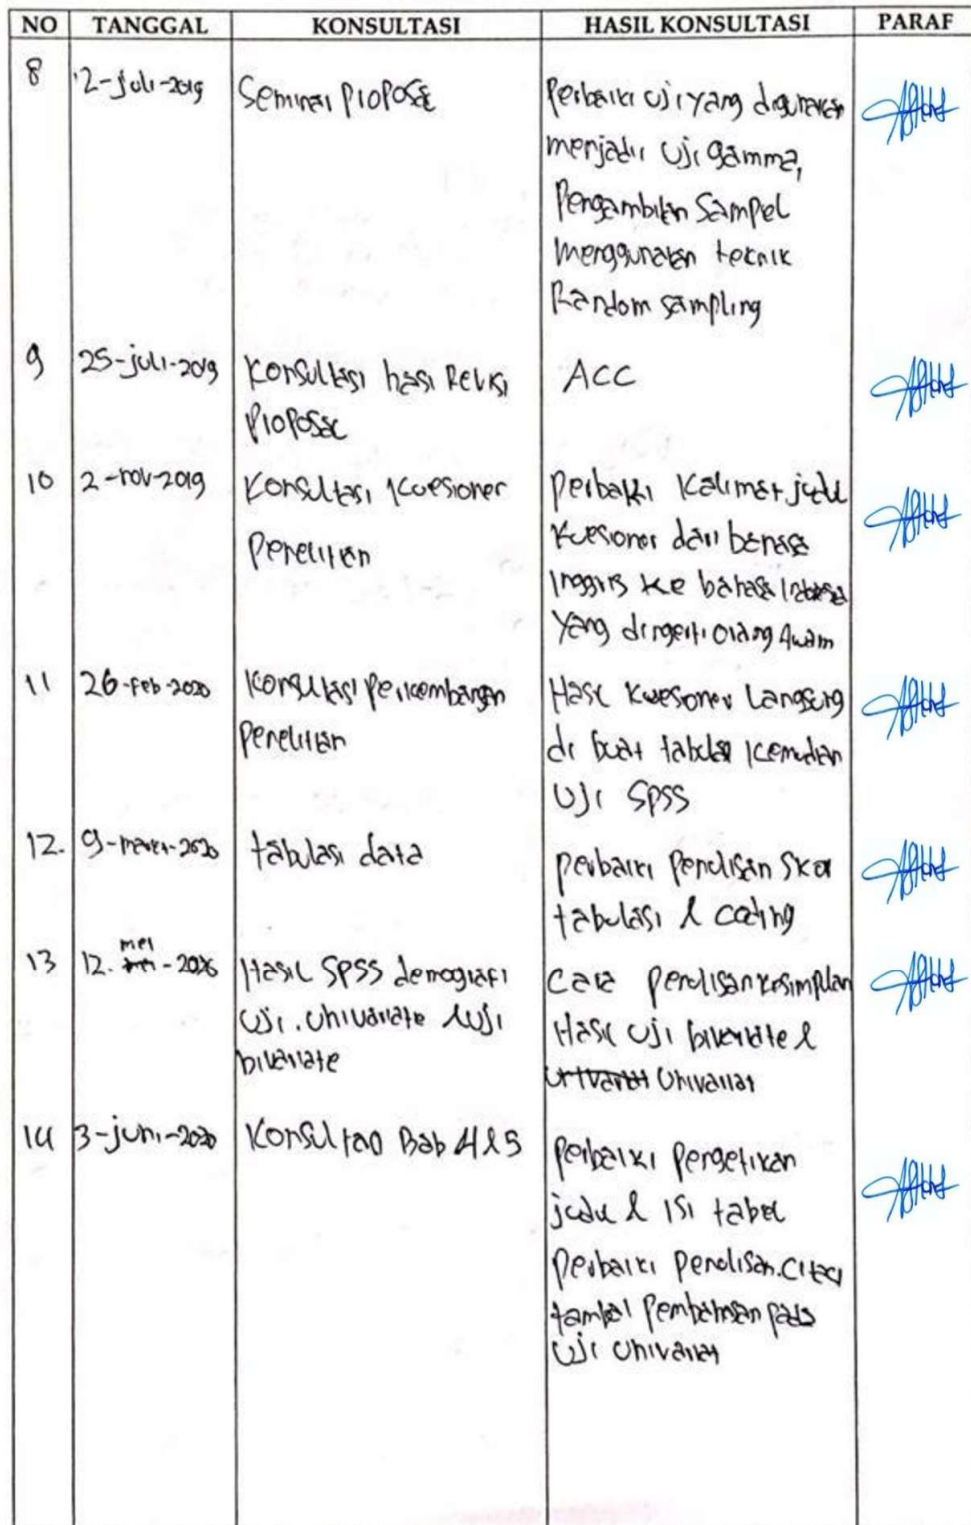 NO TANGGAL KONSULTASI HASIL KONSULTASI PARAF
8 2-juli-2019 Seminar Proposal Perbaiki uji yang digunakan
menjadi uji gamma,
Pengambilan Sampel
menggunakan teknik
Random sampling
9 25-juli-2019 Konsultasi hasi Revisi ACC
Proposal
10 2-nov-2019 Konsultasi Kuesioner Perbaiki Kalimat judul
Penelitian Kuesioner dari bahasa
Inggris ke bahasa
yang dingerti orang Awam
11 26-feb-2020 Konsultasi perkembangan Hasil Kuesioner Langsung
Penelitian di buat tabulasi kemudian
Uji SPSS
12. 9-maret-2020 tabulasi data perbaiki penulisan skor
tabulasi & coding
13 12. mei - 2020 Hasil SPSS demografi Cara penulisan kesimpulan
Uji. Univariate & uji Hasil uji bivariate &
bivariate Univariat
14 3-juni-2020 Konsultasi Bab 4 & 5 perbaiki pengetikan
judul & isi tabel
Perbaiki penulisan. Citasi
tambai pembahasan pada
Uji Univariat